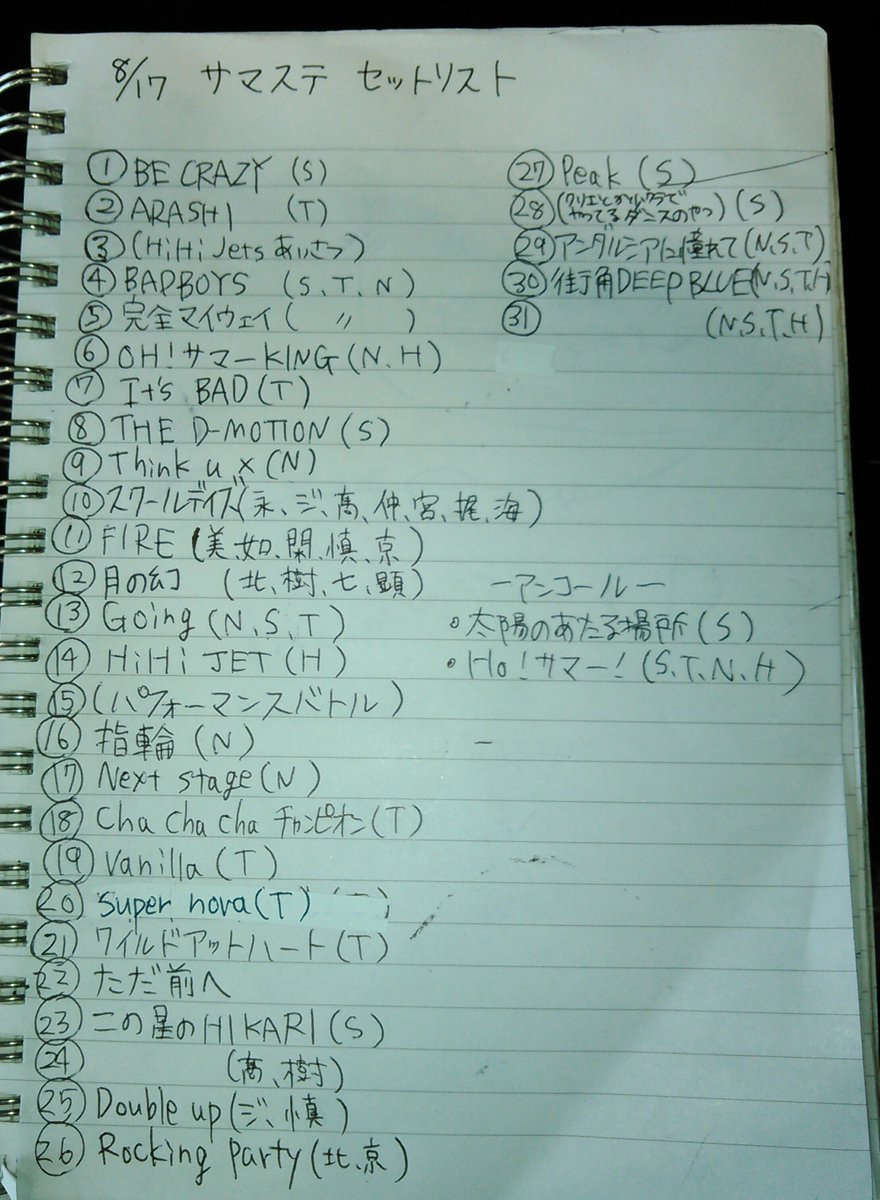 8/17 サマステ セットリスト
① BE CRAZY (S)
② ARASHI (T)
③ (HiHi Jetsあいさつ)
④ BADBOYS (S、T、N)
⑤ 完全マイウェイ( 〃 )
⑥ OH!サマーKING(N、H)
⑦ It's BAD(T)
⑧ THE D-MOTION(S)
⑨ Think u x(N)
⑩ スクールデイズ(永、ジ、髙、仲、宮、梶、海)
⑪ FIRE(美、如、閑、慎、京)
⑫ 月の幻 (北、樹、七、顕)
⑬ Going(N、S、T)
⑭ HiHi JET(H)
⑮ (パフォーマンスバトル)
⑯ 指輪(N)
⑰ Next stage(N)
⑱ Cha Cha cha チャンピオン(T)
⑲ Vanilla(T)
⑳ Super nova(T)
㉑ ワイルドアットハート(T)
㉒ ただ前へ
㉓ この星のHIKARI(S)
㉔ (髙、樹)
㉕ Double up(ジ、慎)
㉖ Rocking Party(北、京)
㉗ Peak(S)
㉘ (クリエとかゆうで
やってるダンスのやつ)(S)
㉙ アンダルシアに憧れて(N、S、T)
㉚ 街角DEEP BLUE(N、S、T、H)
㉛ (N、S、T、H)
ーアンコールー
・太陽のあたる場所(S)
・Ho!サマー!(S、T、N、H)